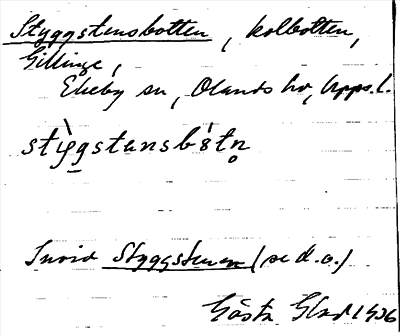 Styggstensbotten, kolbotten,
Gillinge,
Ekeby sn, Olands hd, Upps. l.
stỳgstansbótn̥
Invid Styggstenen (se d. o.)
Gösta Glad 1936